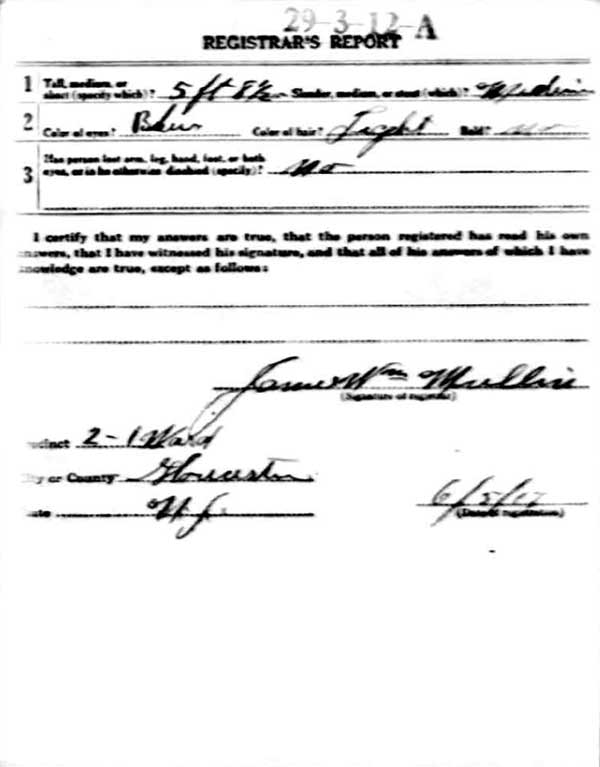 29-3-12-A
REGISTRAR'S REPORT
1 Tall, medium, or short (specify which)? 5 ft 8½ Slender, medium, or stout (which)? Medium
2 Color of eyes? Blue Color of hair? Light Bald? no
3 Has person lost arm, leg, hand, foot, or both eyes, or is he otherwise disabled (specify)? no
I certify that my answers are true, that the person registered has read his own
nswers, that I have witnessed his signature, and that all of his answers of which I have
nowledge are true, except as follows:
James Wm Mullin
(Signature of registrar)
cinct 2-1 Ward
ty or County Gloucester
ate N.J. 6/5/17
(Date of registration)